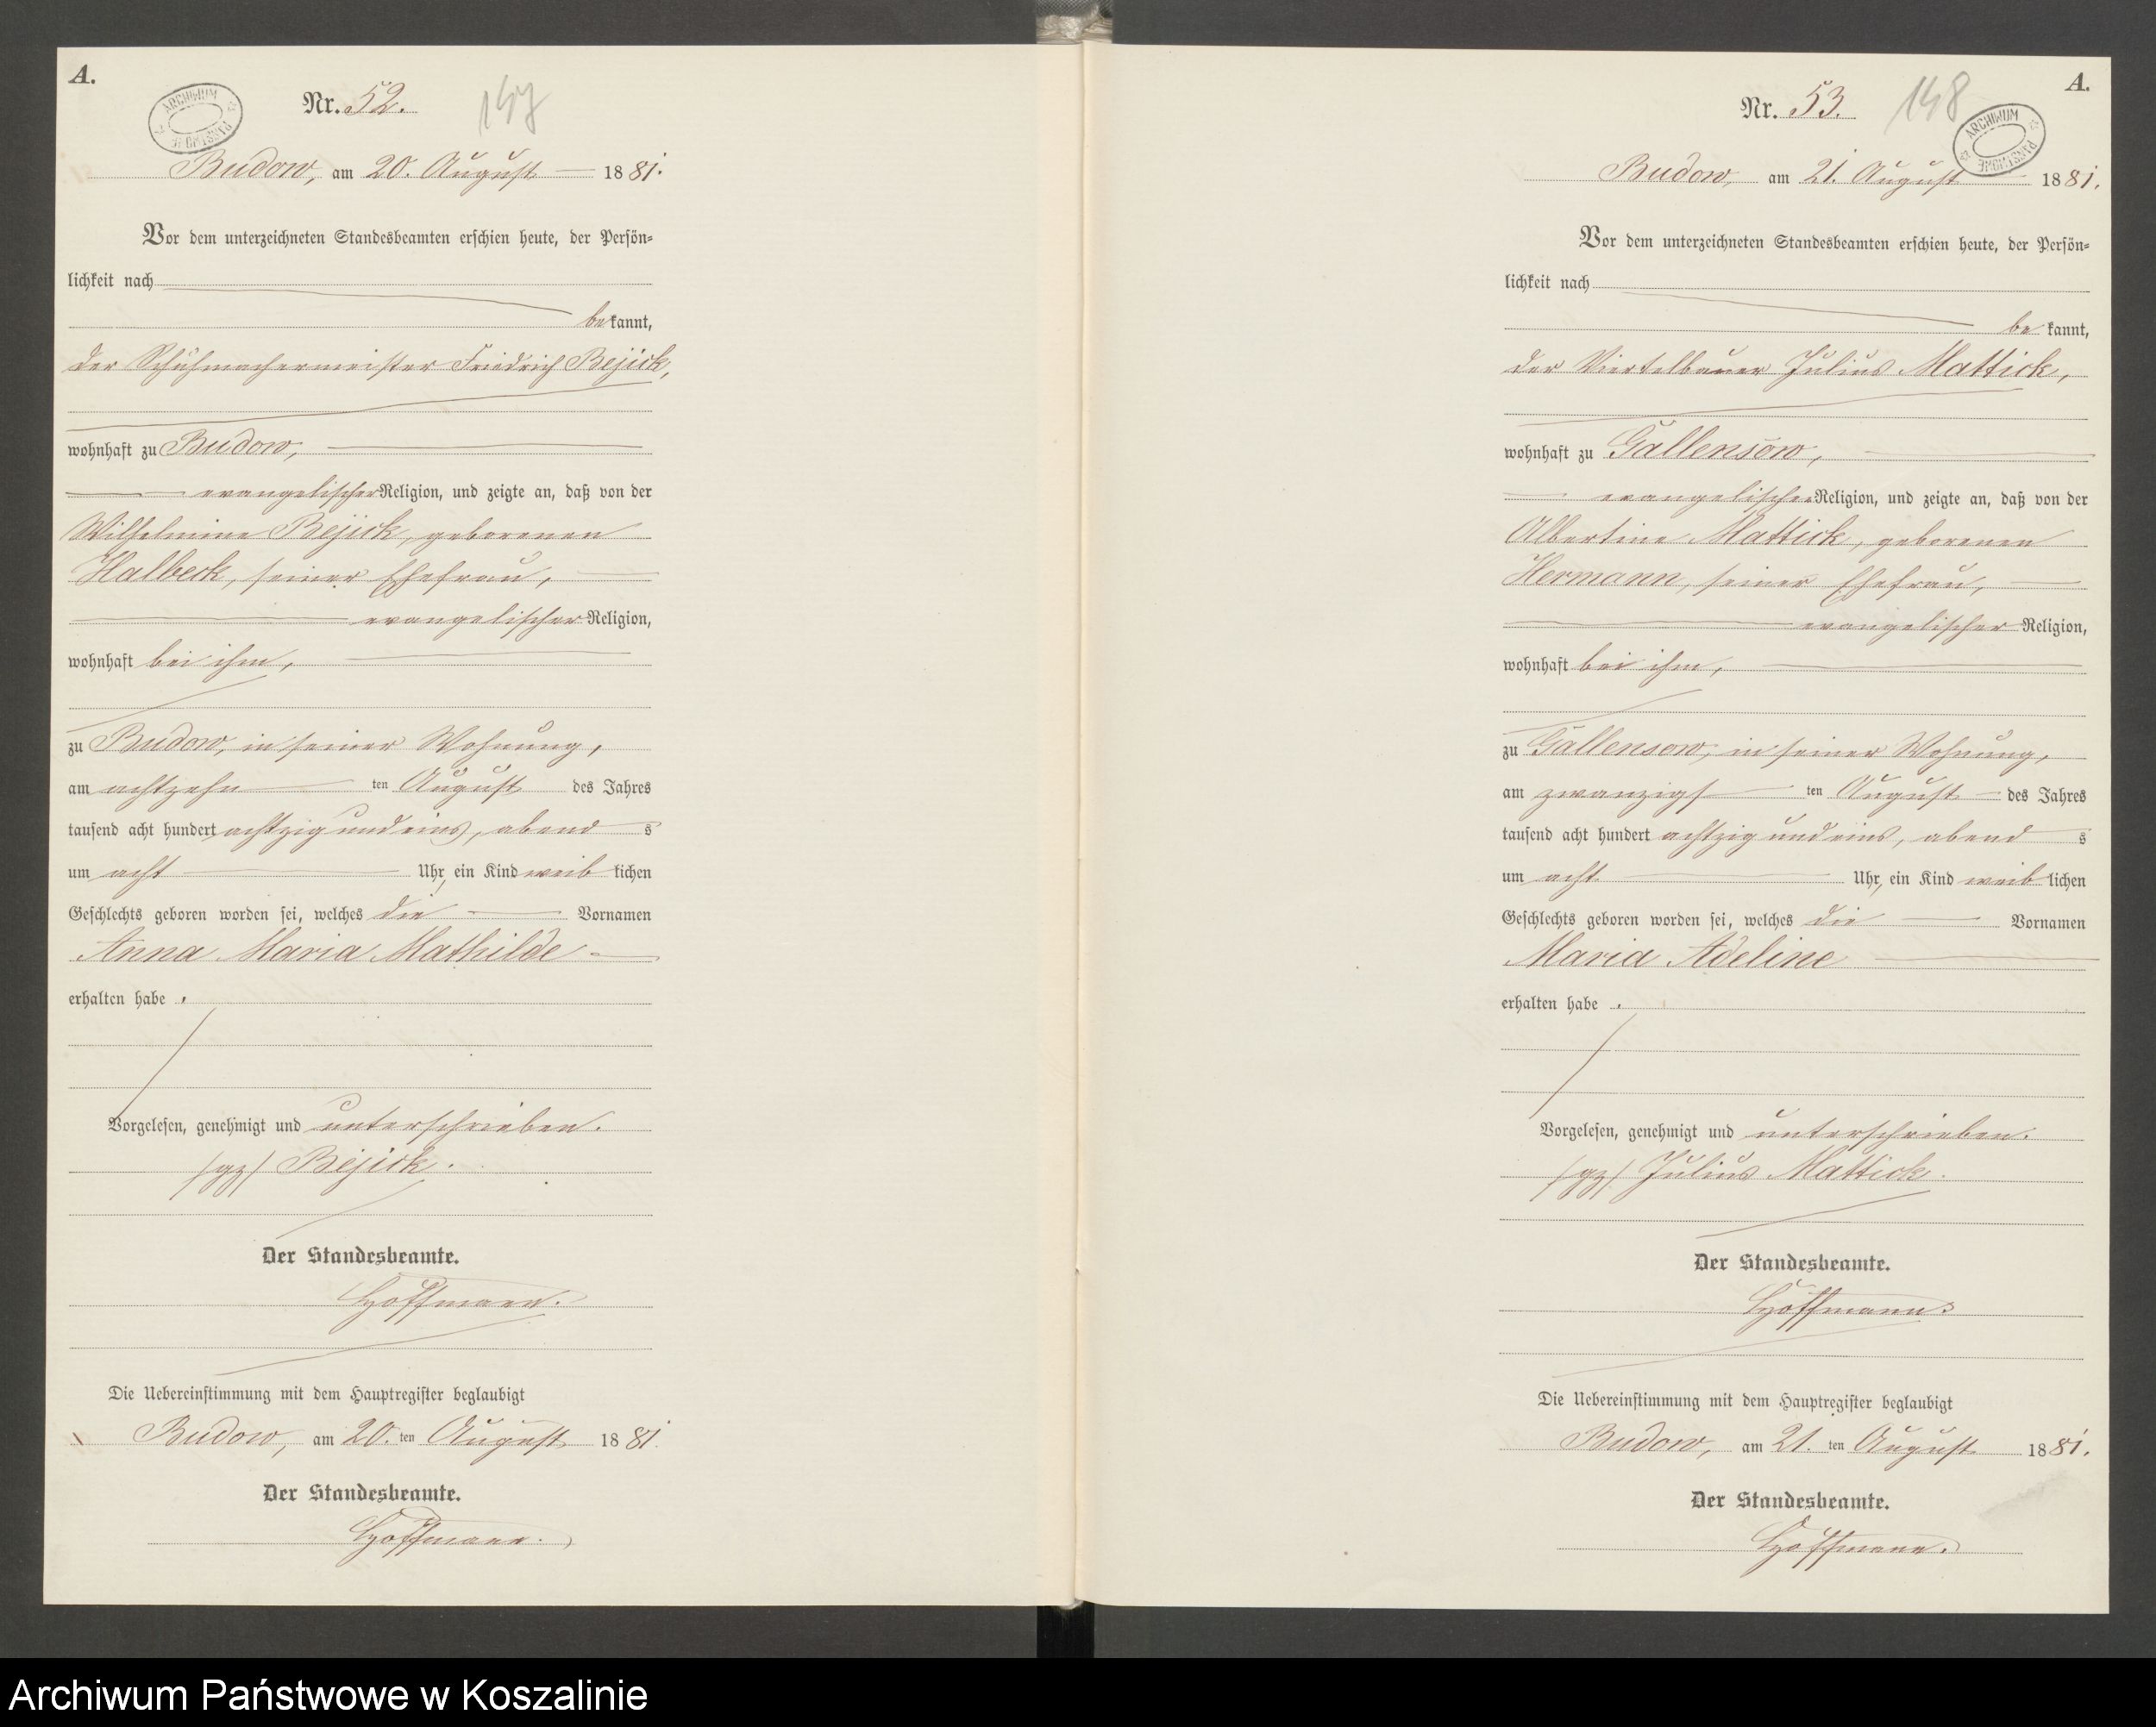 A.
ARCHIWUM PAŃSTWOWE
Nr. 52. 147
Budow, am 20. August 1881.
Vor dem unterzeichneten Standesbeamten erschien heute, der Persön-
lichkeit nach
bekannt,
der Schuhmachermeister Friedrich Bejick,
wohnhaft zu Budow,
evangelischer Religion, und zeigte an, daß von der
Wilhelmine Bejick, geborenen
Halbeck, seiner Ehefrau,
evangelischer Religion,
wohnhaft bei ihm,
zu Budow, in seiner Wohnung,
am achtzehn ten August des Jahres
tausend acht hundert achtzig und eins, abend s
um acht Uhr, ein Kind weib lichen
Geschlechts geboren worden sei, welches die Vornamen
Anna Maria Mathilde
erhalten habe.
Vorgelesen, genehmigt und unterschrieben.
/gz/ Bejick.
Der Standesbeamte.
Hoffmann.
Die Uebereinstimmung mit dem Hauptregister beglaubigt
Budow, am 20. ten August 1881.
Der Standesbeamte.
Hoffmann.
A.
ARCHIWUM PAŃSTWOWE
Nr. 53. 148
Budow, am 21. August 1881.
Vor dem unterzeichneten Standesbeamten erschien heute, der Persön-
lichkeit nach
be kannt,
der Viertelbauer Julius Mattick,
wohnhaft zu Gallensow,
evangelischer Religion, und zeigte an, daß von der
Albertine Mattick, geborenen
Hermann, seiner Ehefrau,
evangelischer Religion,
wohnhaft bei ihm,
zu Gallensow, in seiner Wohnung,
am zwanzigs ten August des Jahres
tausend acht hundert achtzig und eins, abend s
um acht Uhr, ein Kind weib lichen
Geschlechts geboren worden sei, welches die Vornamen
Maria Adeline
erhalten habe.
Vorgelesen, genehmigt und unterschrieben.
/gz/ Julius Mattick.
Der Standesbeamte.
Hoffmann.
Die Uebereinstimmung mit dem Hauptregister beglaubigt
Budow, am 21. ten August 1881.
Der Standesbeamte.
Hoffmann.
Archiwum Państwowe w Koszalinie